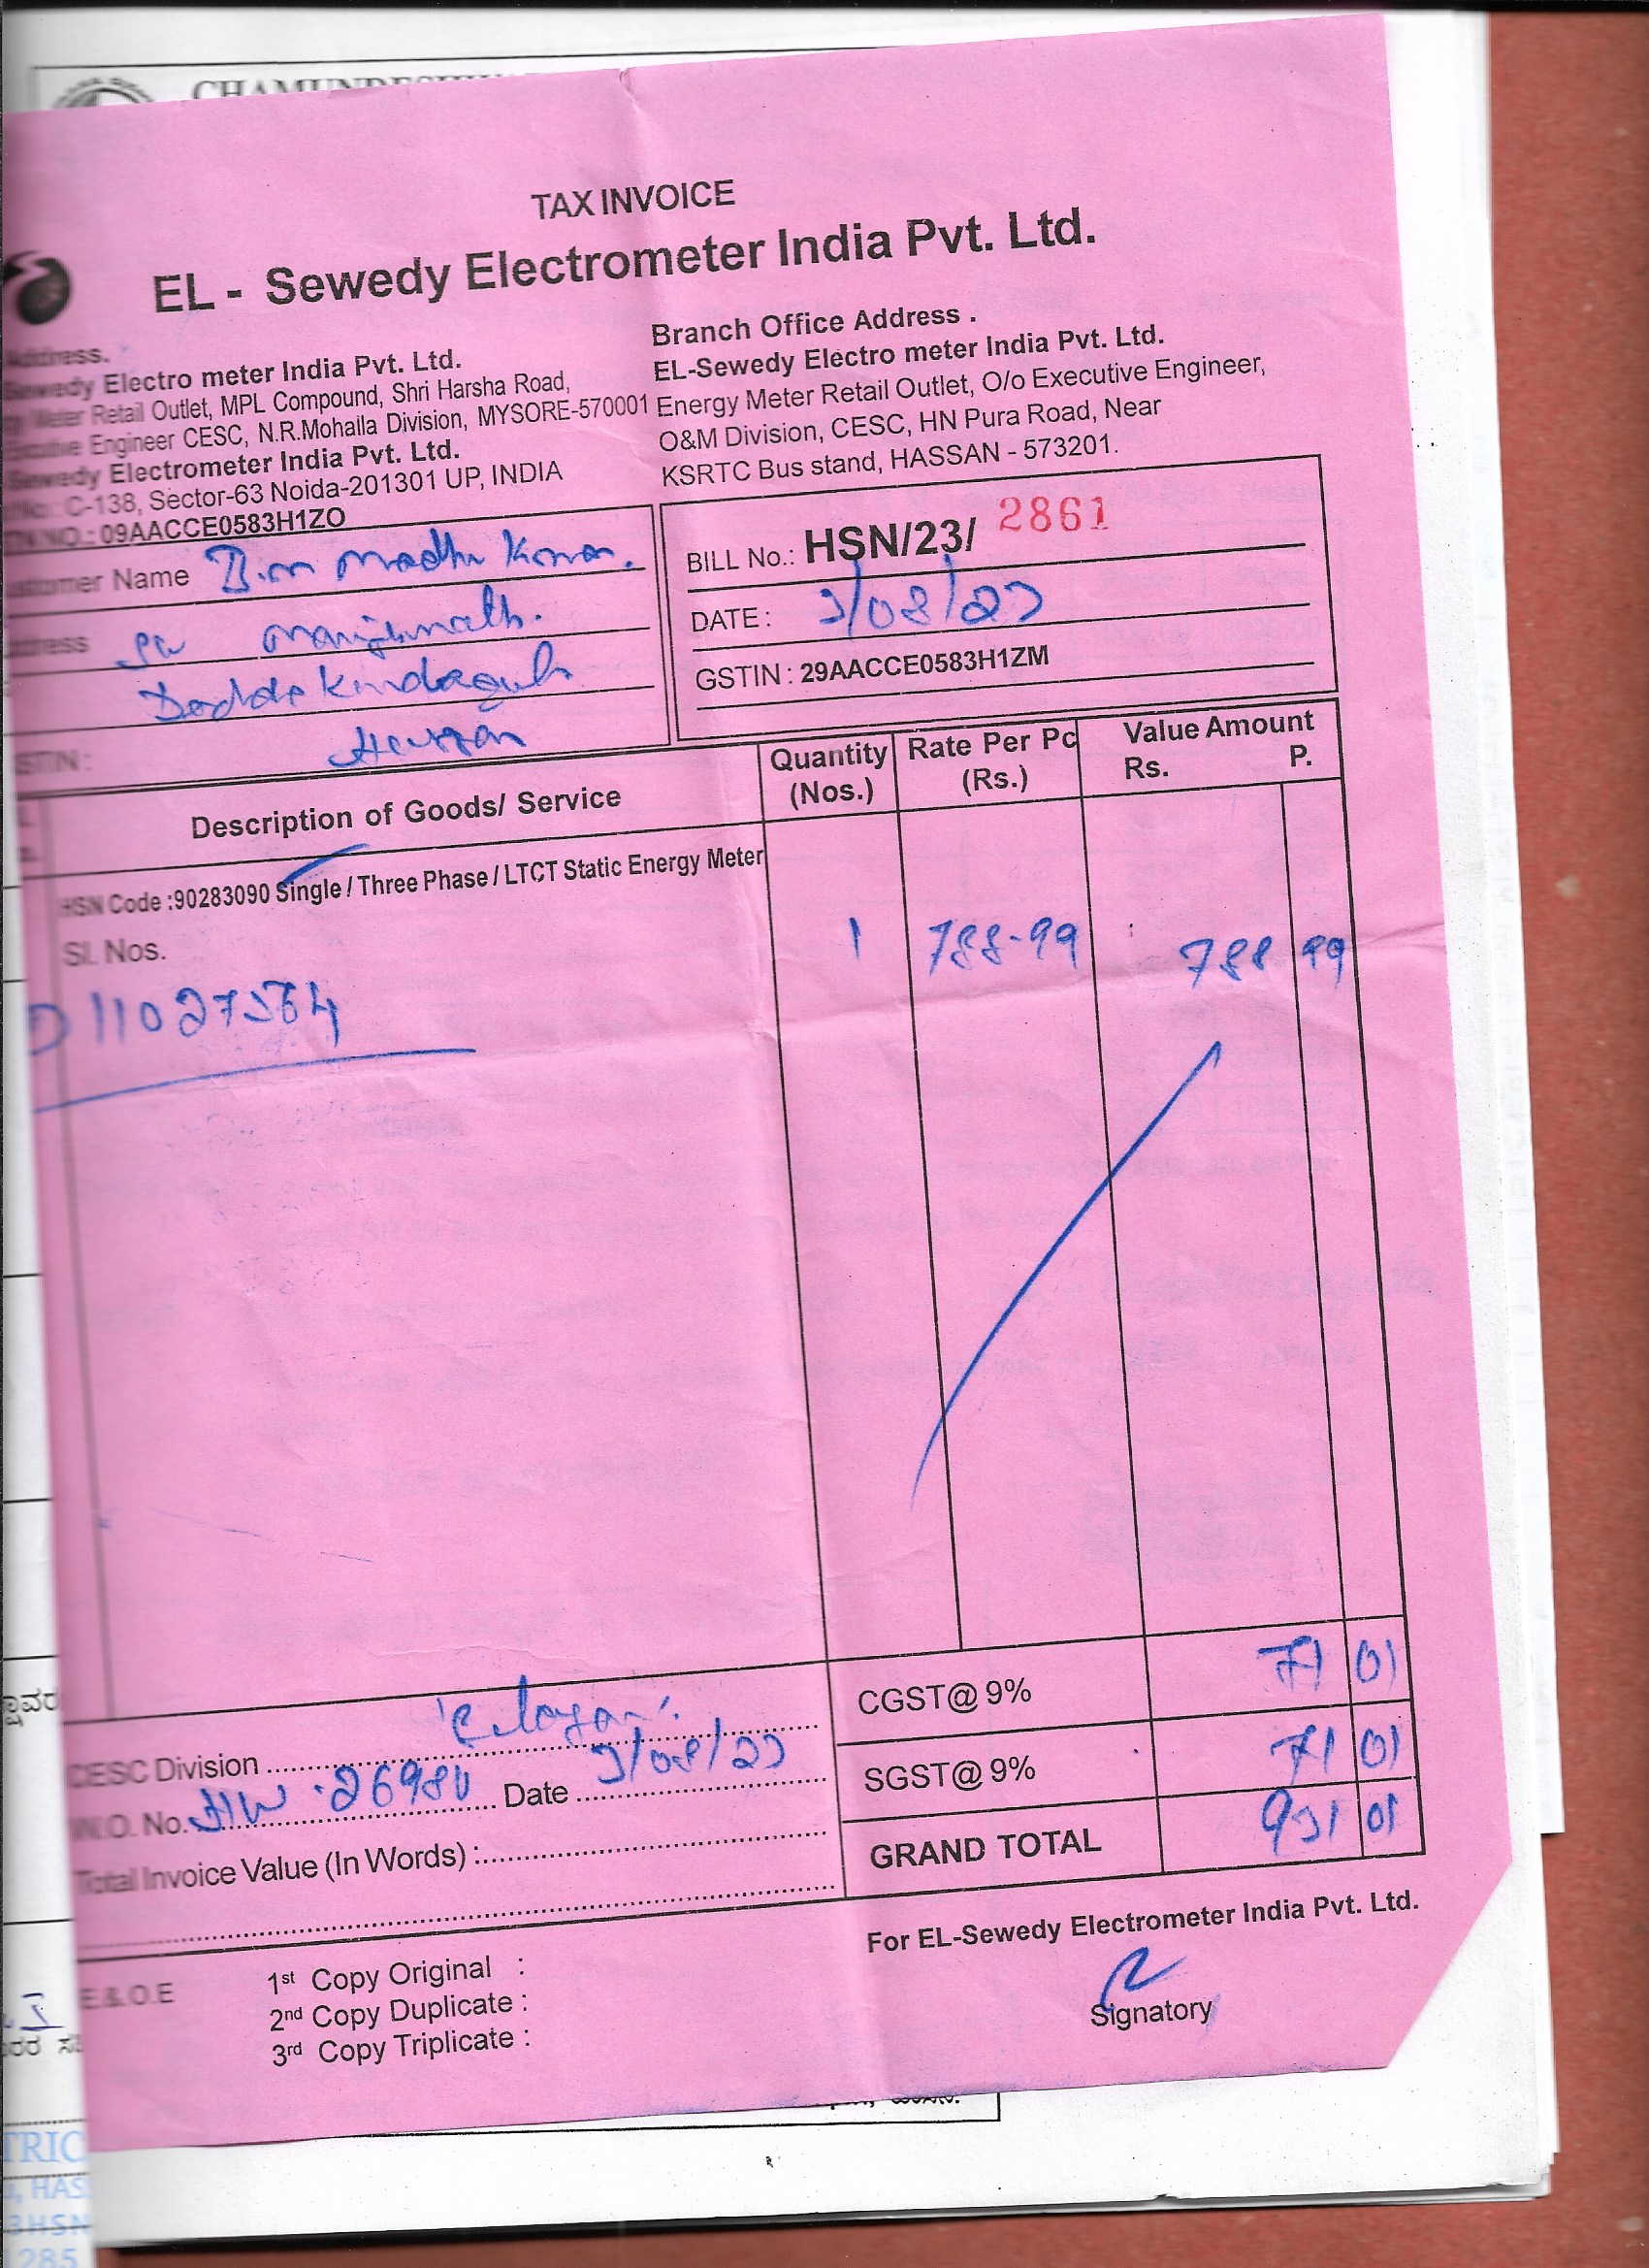 CHAMUNDESHWA
TAX INVOICE
EL - Sewedy Electrometer India Pvt. Ltd.
Address.
Sewedy Electro meter India Pvt. Ltd.
Meter Retail Outlet, MPL Compound, Shri Harsha Road,
Executive Engineer CESC, N.R.Mohalla Division, MYSORE-570001
Sewedy Electrometer India Pvt. Ltd.
No : C-138, Sector-63 Noida-201301 UP, INDIA
NO.: 09AACCE0583H1ZO
Branch Office Address .
EL-Sewedy Electro meter India Pvt. Ltd.
Energy Meter Retail Outlet, O/o Executive Engineer,
O&M Division, CESC, HN Pura Road, Near
KSRTC Bus stand, HASSAN - 573201.
ustomer Name B.m madhu Kumar.
dress s/o manjunath.
Dodda Kondagula
STIN : Hassan
BILL No.: HSN/23/ 2861
DATE : 3/08/23
GSTIN : 29AACCE0583H1ZM
Description of Goods/ Service
Quantity (Nos.)
Rate Per Pc (Rs.)
Value Amount
Rs. P.
HSN Code :90283090 Single / Three Phase / LTCT Static Energy Meter
Sl. Nos.
1 788-99 788 99
D11027564
CGST@ 9% 71 01
SGST@ 9% 71 01
GRAND TOTAL 931 01
CESC Division
W.O. No. HW 26980 Date 3/08/23
Total Invoice Value (In Words) :
For EL-Sewedy Electrometer India Pvt. Ltd.
Signatory
E.& O.E
1st Copy Original :
2nd Copy Duplicate :
3rd Copy Triplicate :
TRIC
, HAS
3HSN
1285